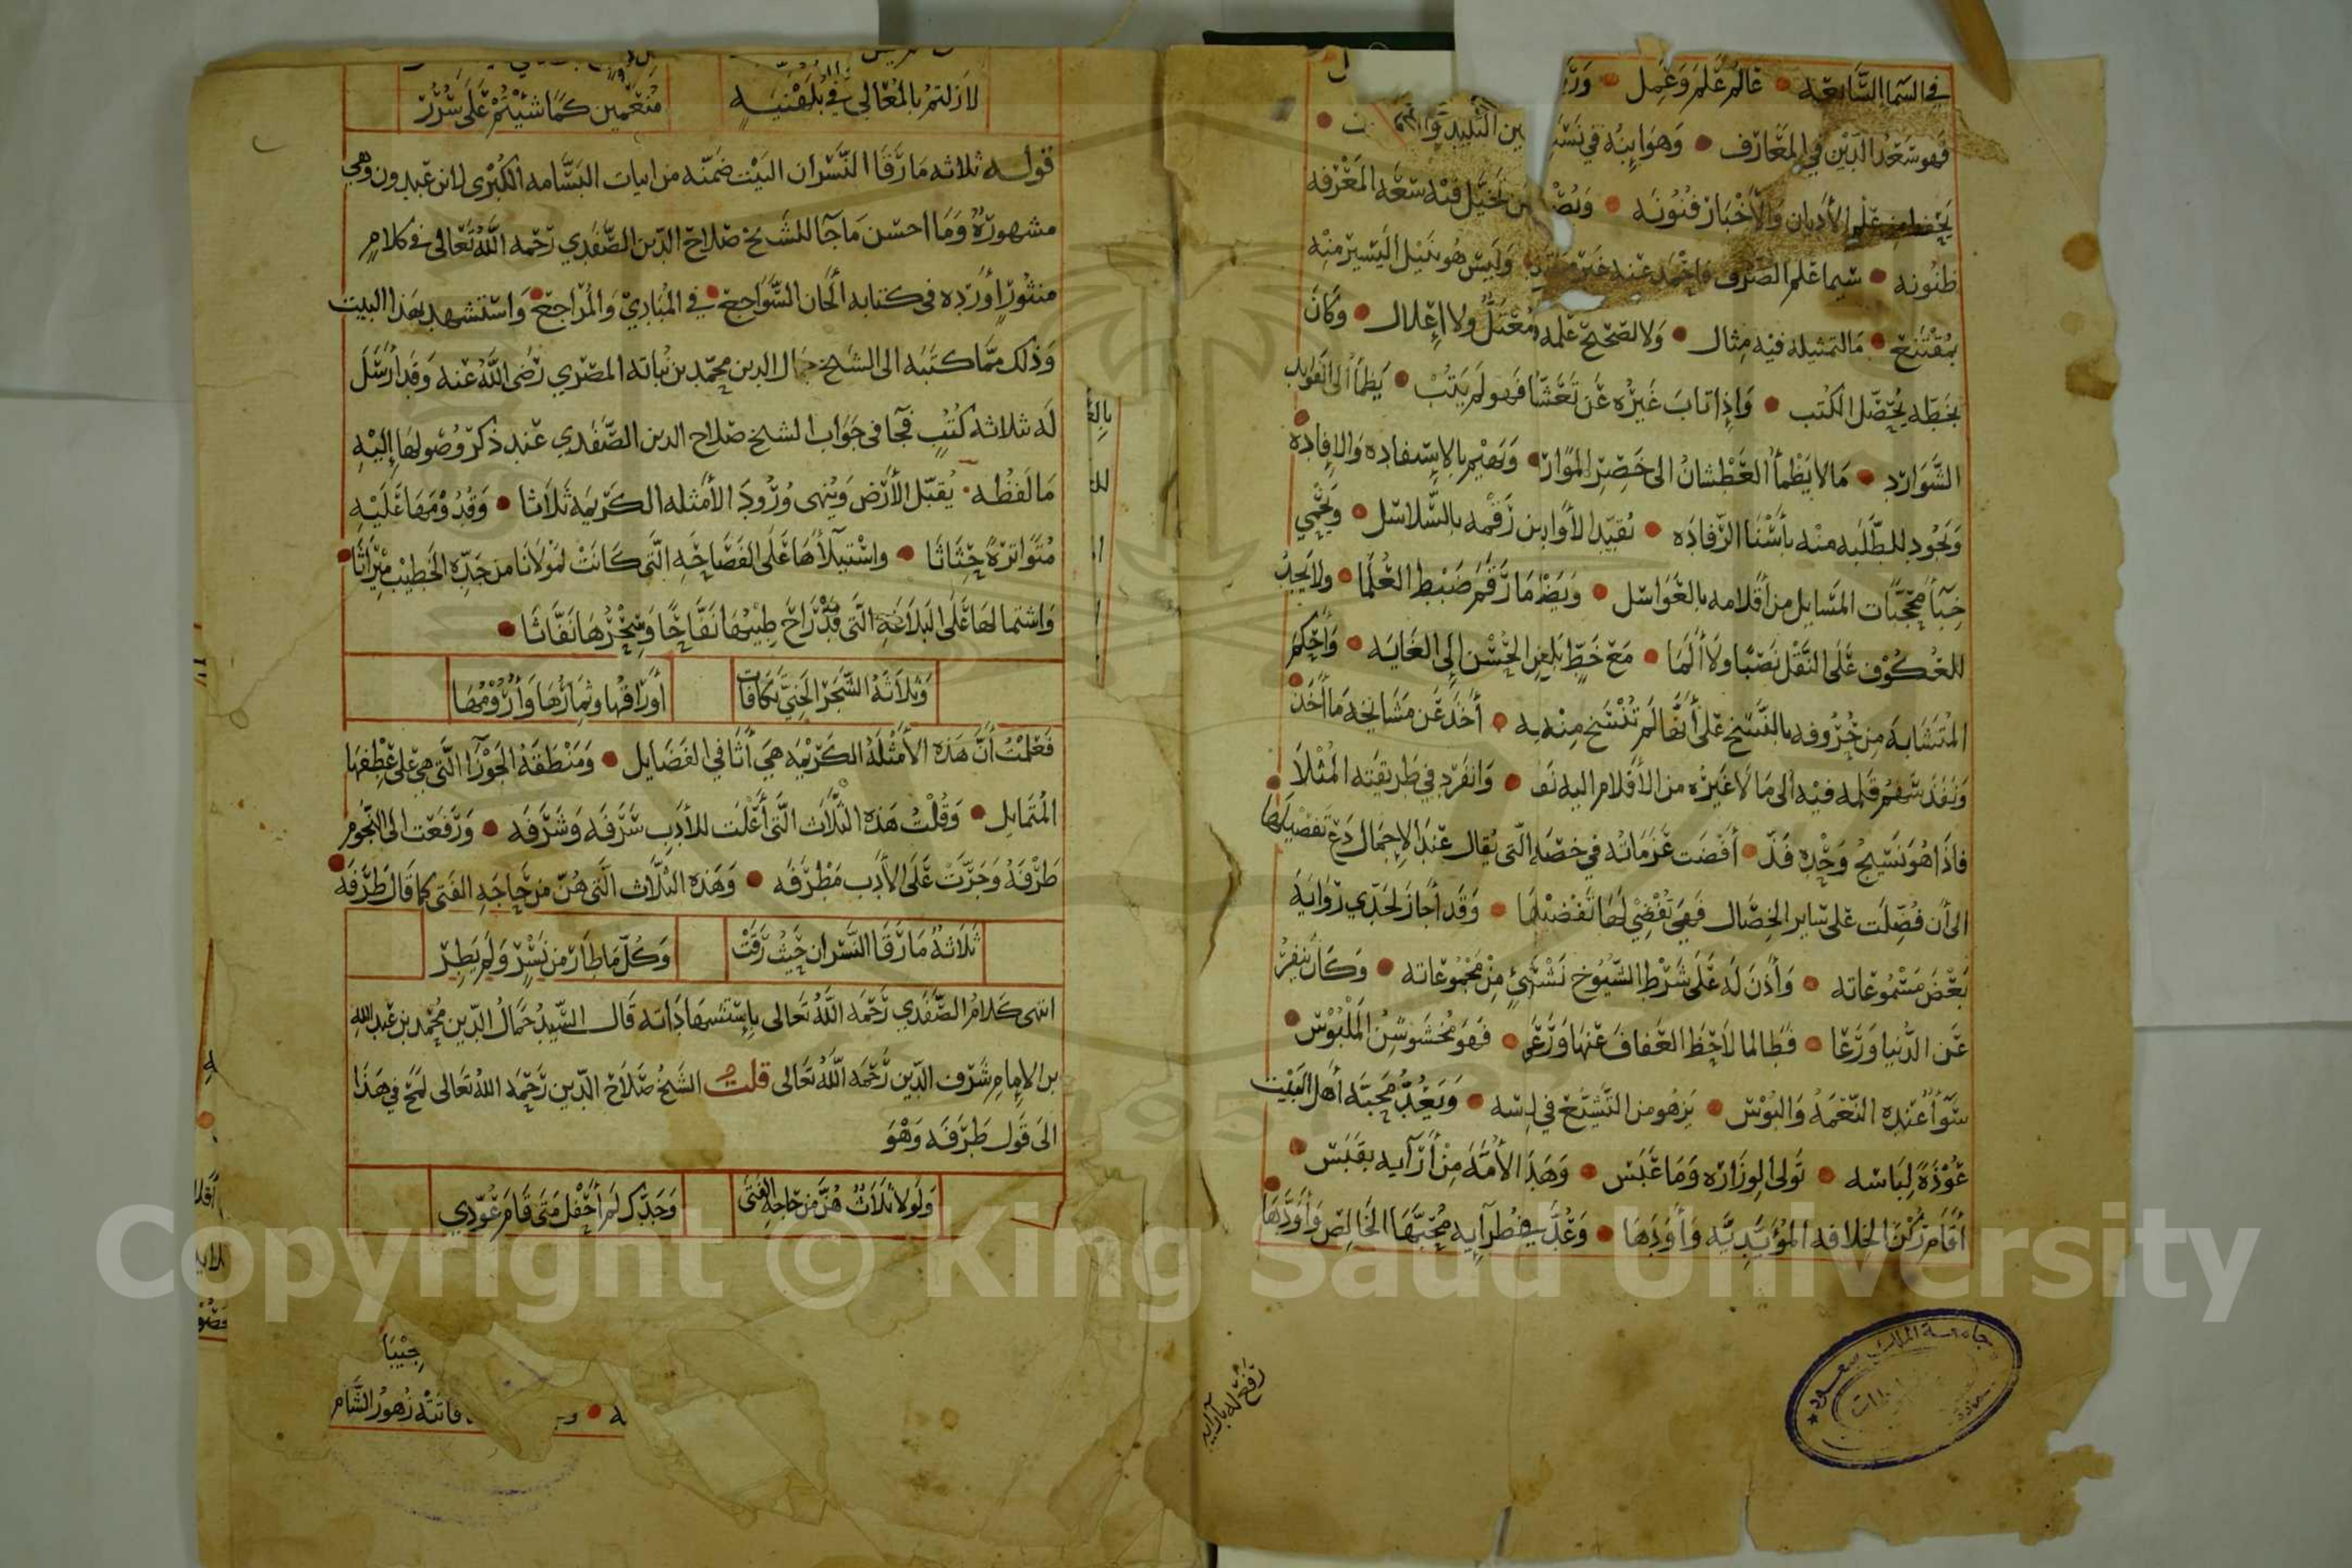 في السما السابعه • عالم علم وعمل •
فهو سعد الدين في المعارف • وهو ابنه في بين التليد
يحفظ من علم الأديان والأخبار فنونه • تخيل فيه سعه المعرفه
ظنونه • سيما علم الصرف وليس هو بنيل اليسير منه
بمقتنع • ما لتمثيله فيه مثال • ولا لصحيح علمه معتل ولا إعلال • وكان
بخطه يحصل الكتب • وإذا تاب غيره عن فهو لم يتب • يظمأ الى الفوايد
الشوارد • ما لا يظمأ العطشان الى خصر الموارد • ويهيم بالإستفاده والإفاده
ويجود للطلبه منه بأسنا الرفاده • تقيد الأوابد رقمه بالسلاسل • ويحمي
خبأ محجبات المسايل من أقلامه بالعواسل • ضبط العلما • ولا يجد
للعكوف على النقل نصبًا ولا ألما • مع خط بلغ الحسن إلى الغايه • وأحكم
المتشابه من حروفه بالنسخ على أنها لم تنسخ منه به • أخذ عن مشايخه ما أخذ
ونفذ سهم قلمه فيه الى ما لا غيره من الأقلام اليه نفذ • وانفرد في طريقته المثلا
فاذا هو نسيج وحده فذ • أفضت عزماته في خصله التي يقال عند الإجمال دع تفصيلها
الى أن فضلت على ساير الخصال فهي تقضي لها تفضيلها • وقد أجاز لجدي روايه
بعض مسموعاته • وأذن له على شرط الشيوخ من مجموعاته • وكان ينفر
عن الدنيا ورعا • فطالما لاحظ العفاف عنها ورعى • فهو مخشوشن الملبوس
سوآء عنده النعمه والبوس • يزهو من التشيع في لبسه • ويعد محبته أهل البيت
عوذة لباسه • تولى الوزاره وما عبس • وهذ الأمة من أرآيه بقبس
أقام ركن الخلافه المؤيديه وأودها • وعد محبها الخالص وأودها
لا زلتم بالمعالي في بلهنيه منعمين كما شيتم على سرر
قوله ثلاثه ما رقا النسران البيت ضمنه من ابيات البسامه الكبرى لابن عبدون وهي
مشهورة وما احسن ما جآ للشيخ صلاح الدين الصفدي رحمه الله تعالى في كلام
منثور أورده في كتابه ألحان السواجع • في المبادي والمراجع • واستشهد بهذا البيت
وذلك مما كتبه الى الشيخ جمال الدين محمد بن نباته المصري رضي الله عنه وقد أرسل
له ثلاثه كتب فجآ في جواب الشيخ صلاح الدين الصفدي عند ذكر وصولها إليه
ما لفظه • يقبل الأرض وينهى ورود الأمثله الكريمه ثلاثا • وقدومها عليه
متواترة حثاثا • واستيلآها على الفصاحه التي كانت لمولانا من جده الخطيب ميراثا •
واشتمالها على البلاغه التي قد راح طيبها نفاحًا وسحرها نفاثا •
وثلاثة الشجر الجني تكافات أوراقها وثمارها وأرومها
فعلمت أن هذه الأمثله الكريمه هي أثافي الفضايل • ومنطقة الجوزا التي هي على عطفها
المتمايل • وقلت هذه الثلاث التي أعلت للأدب شرفه وشرفه • ورفعت الى النجوم
طرفه وجرت على الأدب مطرفه • وهذه الثلاث التي هن من حاجه الفتى كما قال طرفه •
ثلاثة ما رقا النسران حيث رقت وكل ما طار من نسر ولم يطر
انتهى كلام الصفدي رحمه الله تعالى بإستشهاداته قال السيد جمال الدين محمد بن عبد الله
بن الإمام شرف الدين رحمه الله تعالى قلت الشيخ صلاح الدين رحمه الله تعالى لمح في هذا
الى قول طرفه وهو
ولولا ثلاث هن من حاجه الفتى وجدك لم أحفل متى قام عودي
زهور الشام
جامعة الملك سعود
Copyright © King Saud University
1957